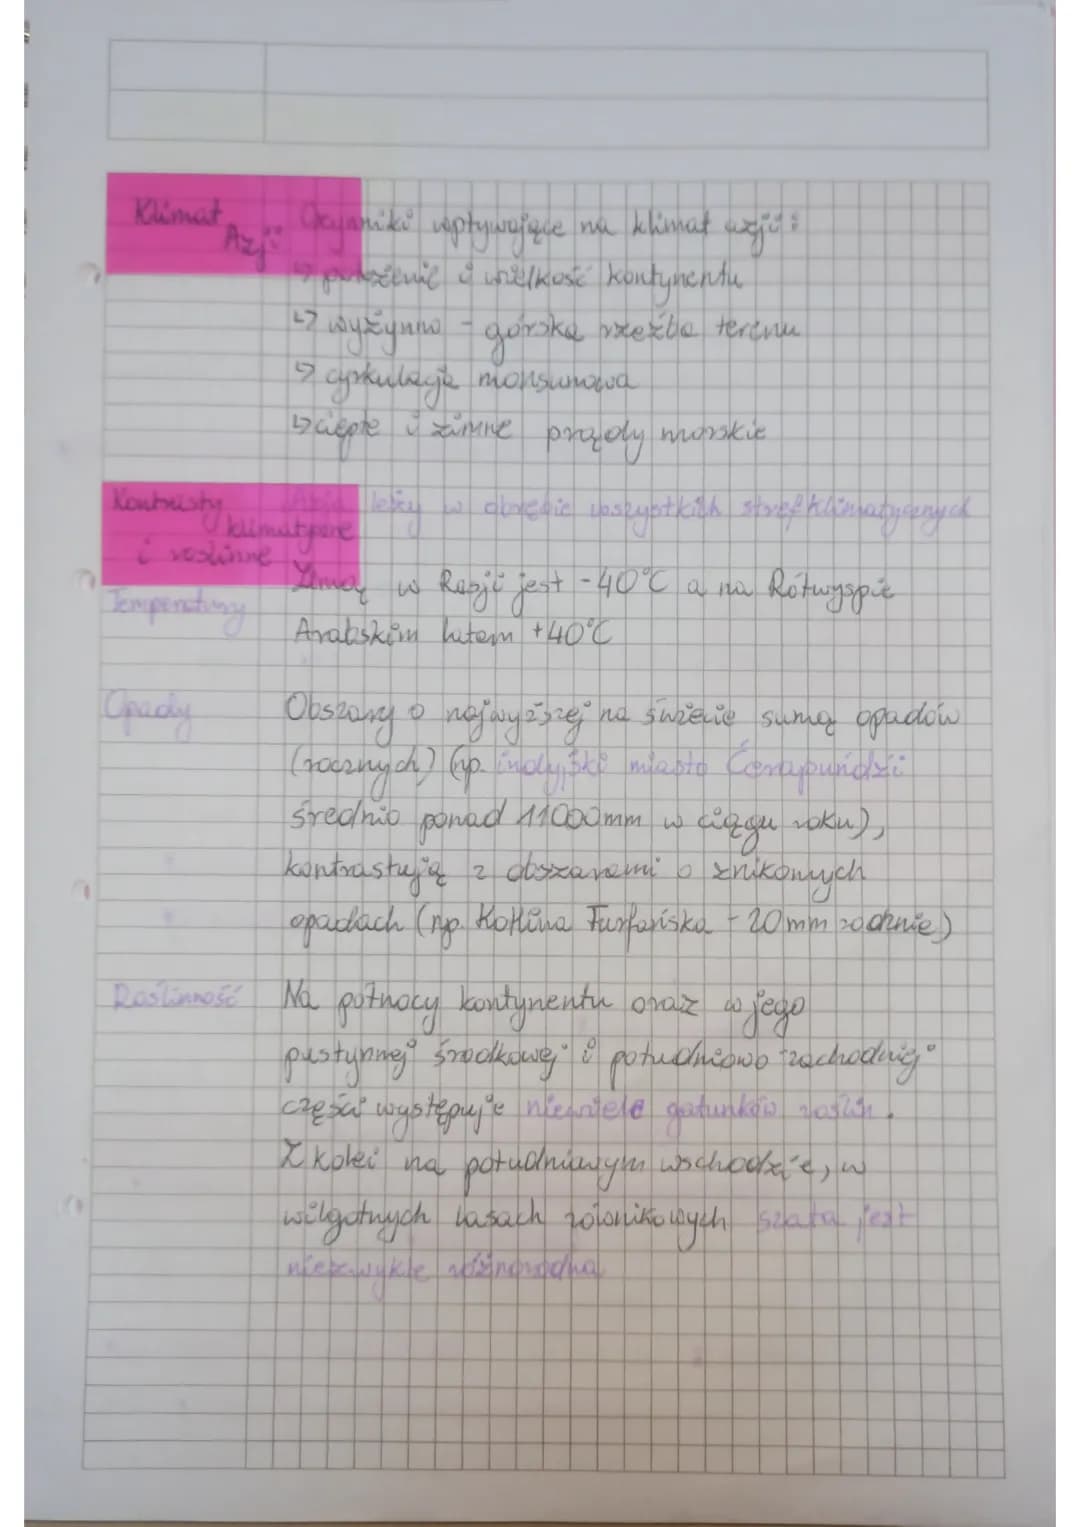 Klimat Azji
Czynniki wpływające na klimat azji:
↳ położenie i wielkość kontynentu
↳ wyżynno - górska rzeźba terenu
↳ cyrkulacja monsunowa
↳ ciepłe i zimne prądy morskie
Kontrasty klimatyczne i roślinne
Azja leży w obrębie wszystkich stref klimatycznych
Temperatury
Zimą w Rosji jest -40°C a na Półwyspie
Arabskim latem +40°C
Opady
Obszary o najwyższej na świecie sumą opadów
(rocznych) (np. indyjski miasto Czerapuńdżi
średnio ponad 11000mm w ciągu roku),
kontrastują z obszarami o znikomych
opadach (np. Kotlina Turfańska - 20mm rocznie)
Roślinność
Na północy kontynentu oraz w jego
pustynnej środkowej i południowo zachodniej
części występuje niewiele gatunków roślin.
Z kolei na południowym wschodzie, w
wilgotnych lasach równikowych szata jest
niezwykle różnorodna